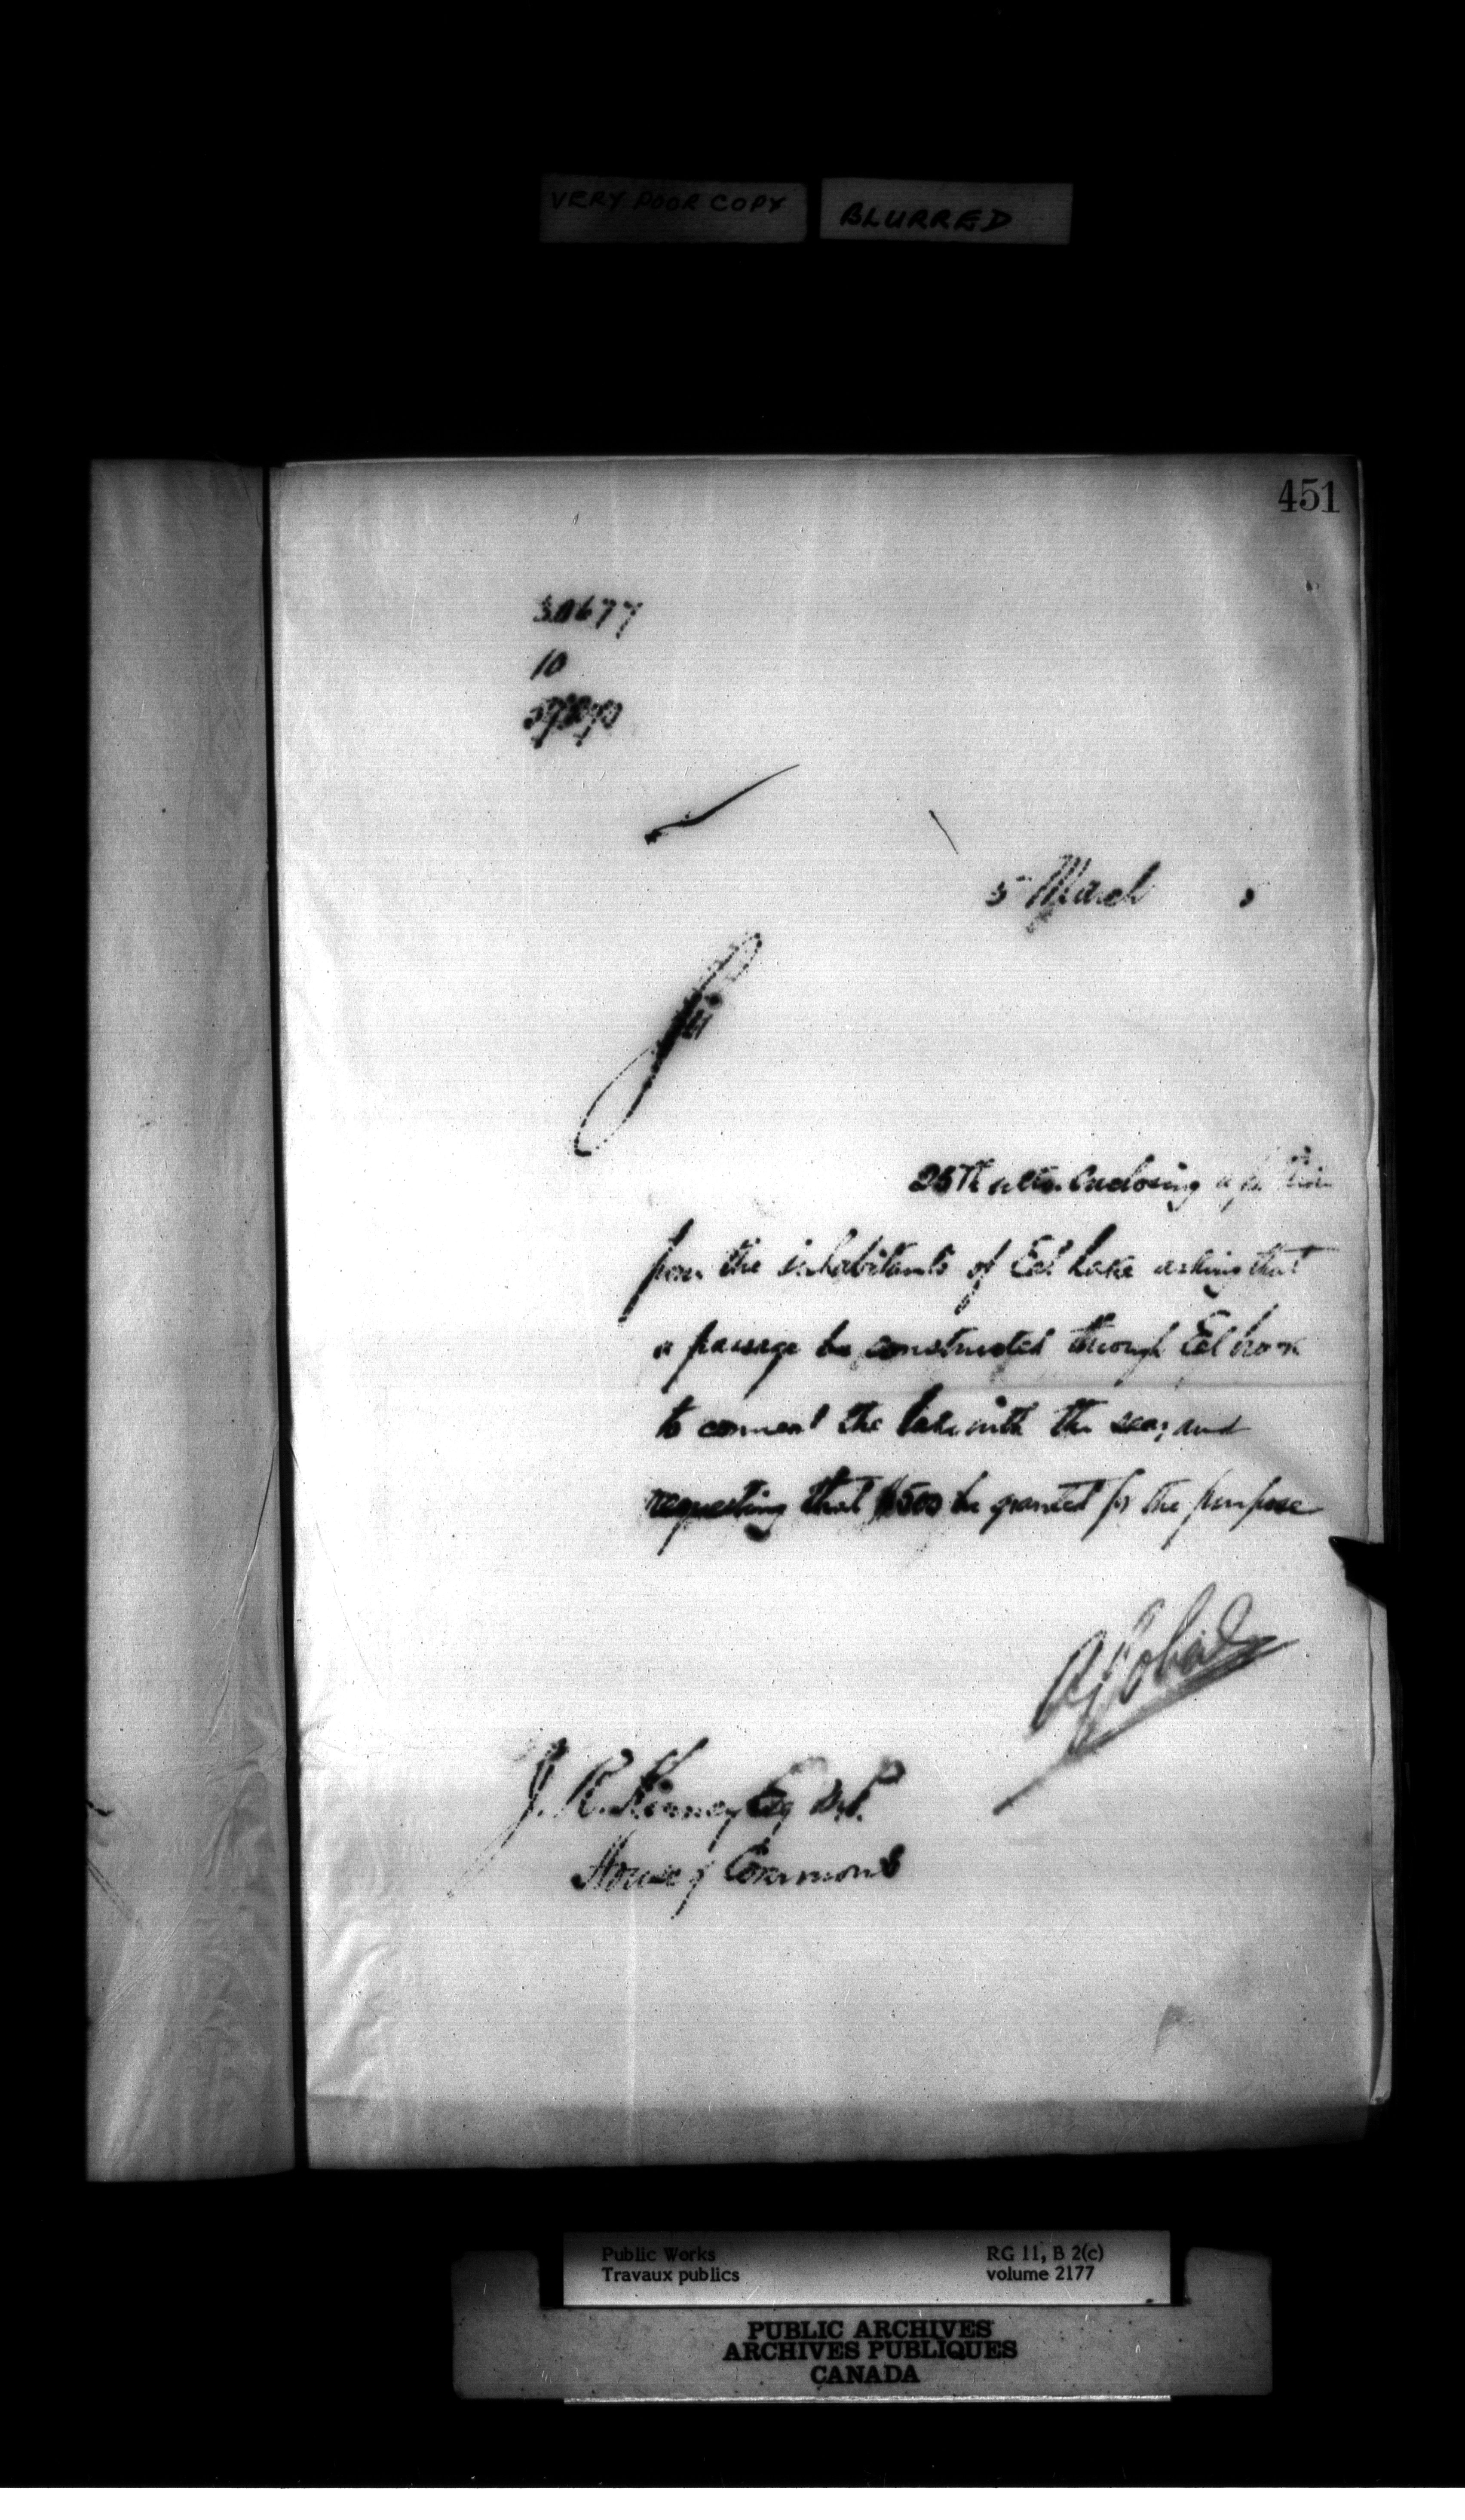 VERY POOR COPY BLURRED
451
30677
10
5 March 5
Sir
25th ulto. enclosing a petition
from the inhabitants of Eel Lake asking that
a passage be constructed through Eel brook
to connect the Lake with the sea; and
requesting that $500 be granted for the purpose
J. R. Kinney Esq M.P.
House of Commons
Public Works RG 11, B 2(c)
Travaux publics volume 2177
PUBLIC ARCHIVES
ARCHIVES PUBLIQUES
CANADA